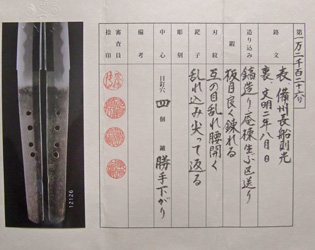 第一万二千百二十六号
銘文
表、備州長船則光
裏、文明二年八月日
造り込み
鎬造り庵棟生ぶ区送り
鍛
板目良く錬れる
刃紋
互の目乱れ腰開く
鋩子
乱れ込み尖って返る
彫刻
中心
目釘穴 四 個 鑢 勝手下がり
備考
審査員
捺印
12126